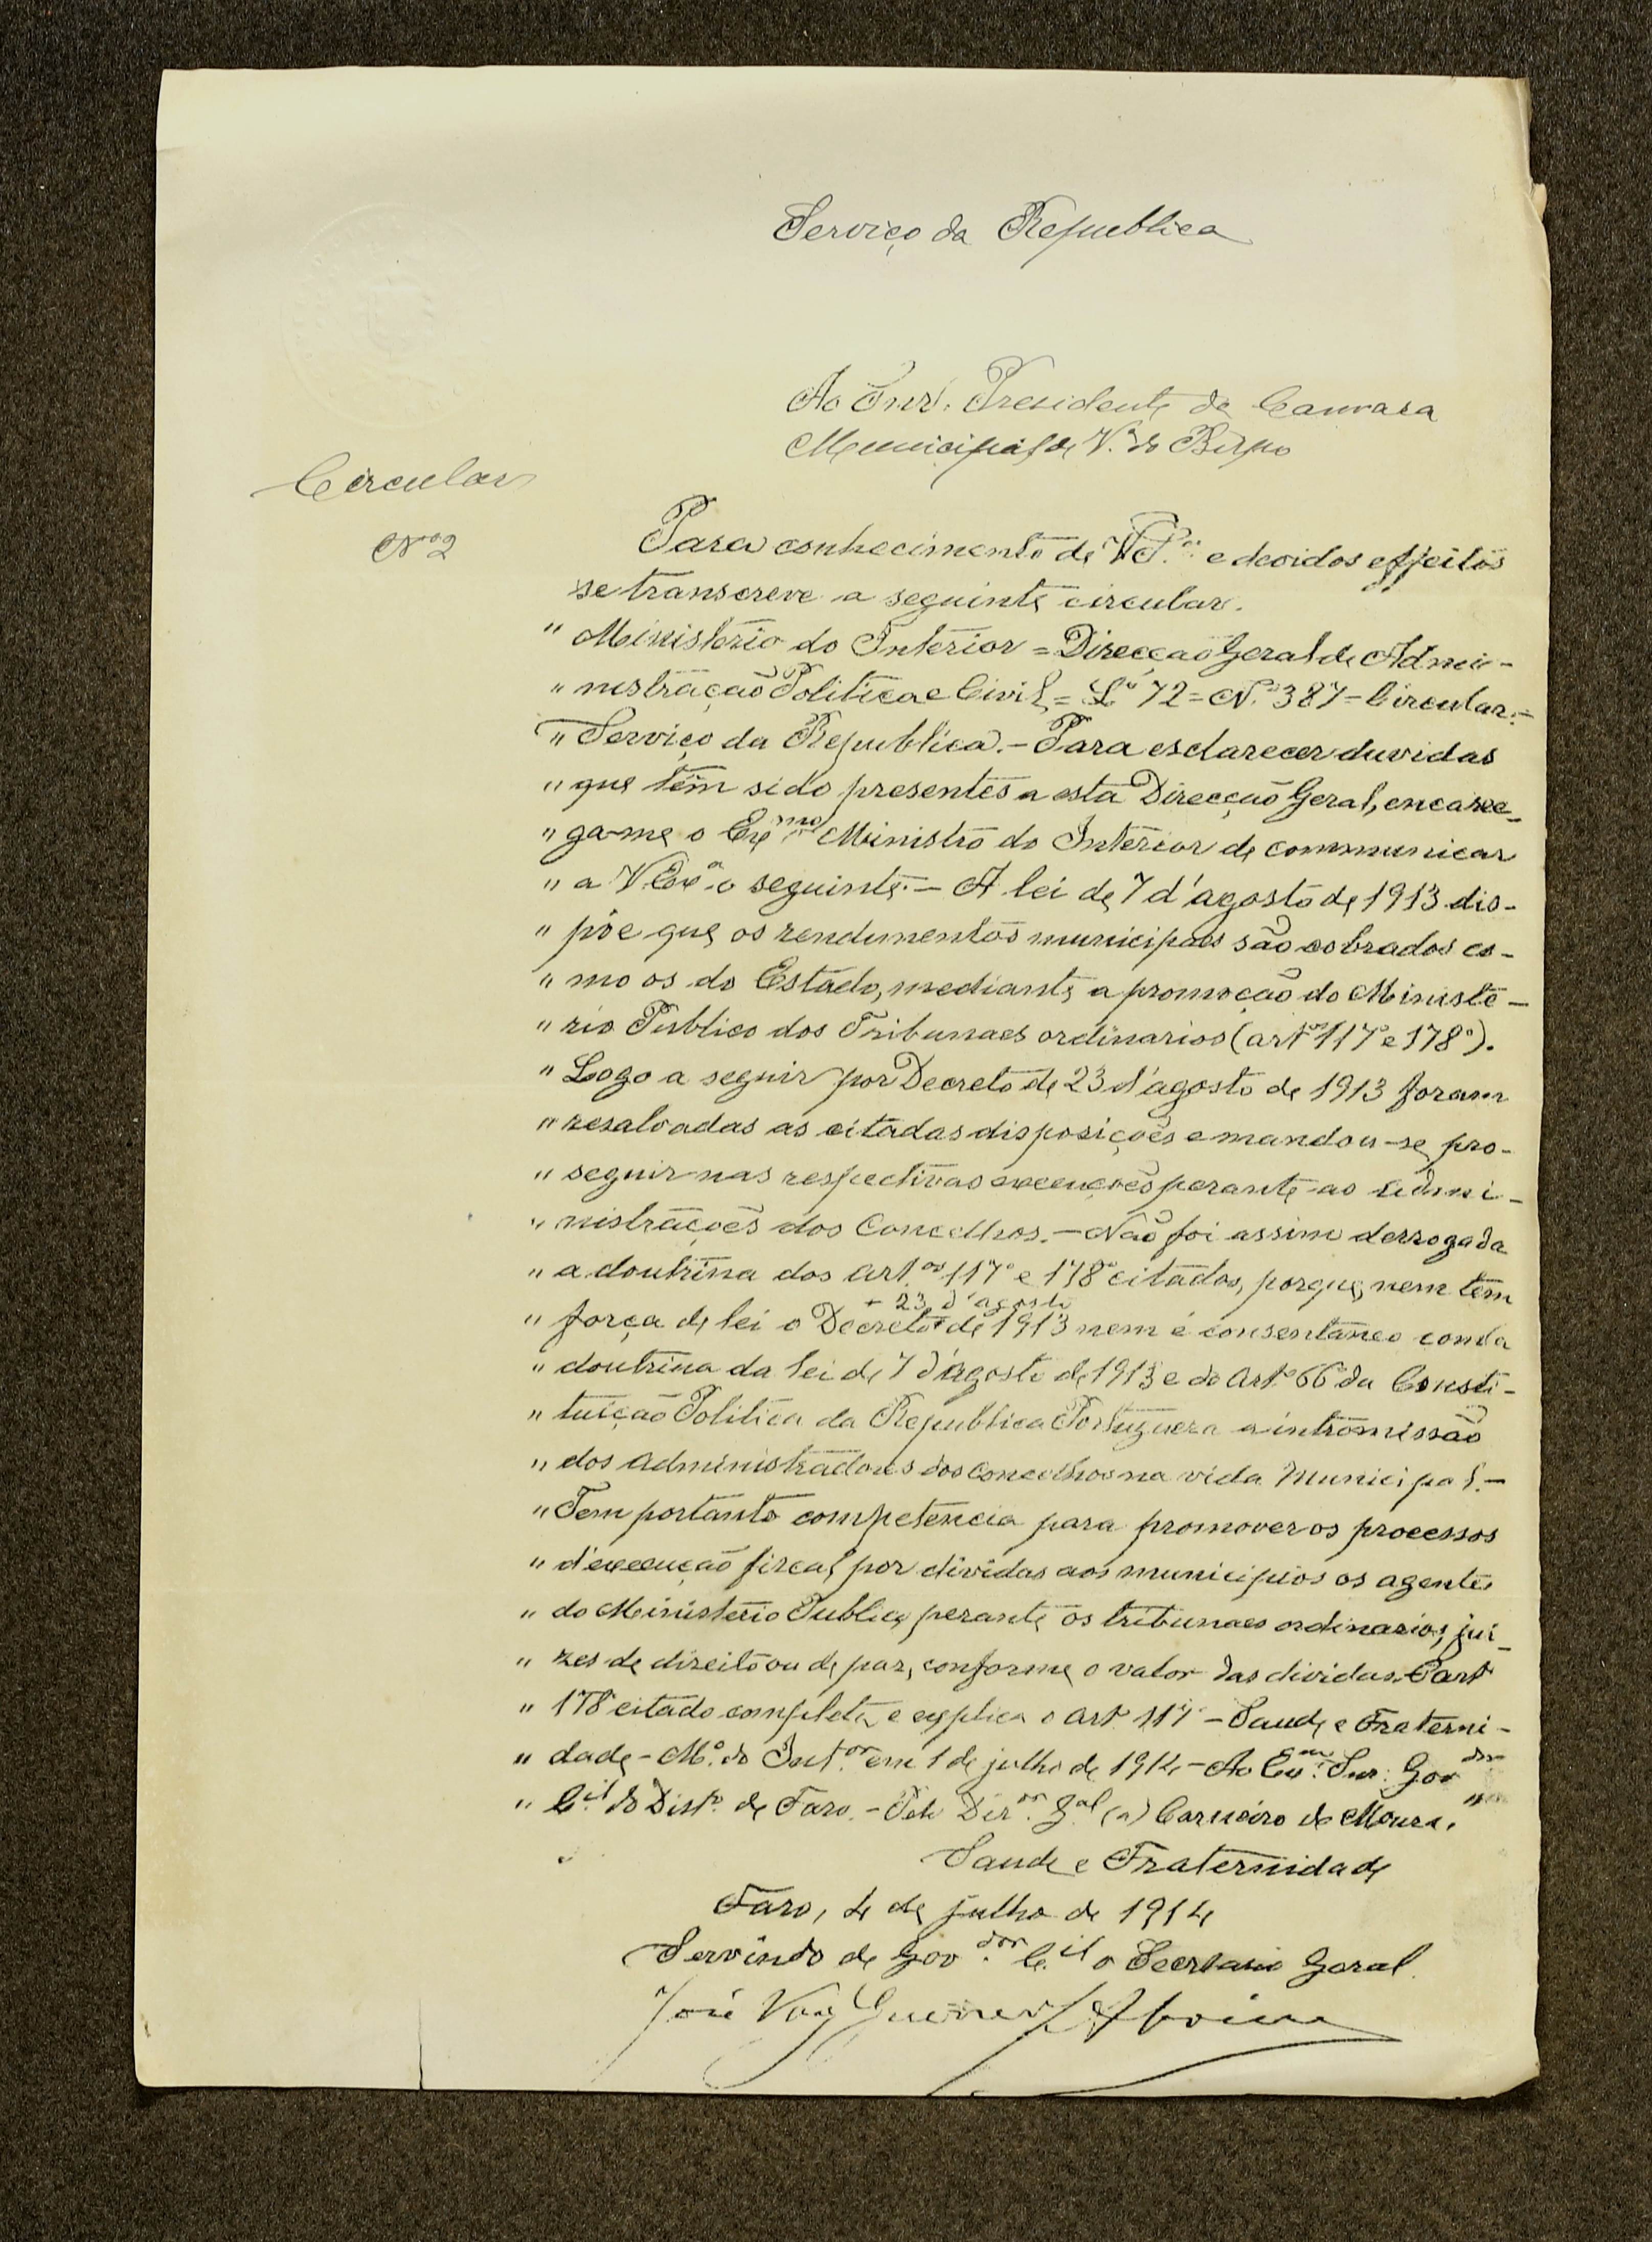 Serviço da Republica
Ao Snr. Presidente da Camara
Municipal de V. do Bispo
Circular
Nº 2
Para conhecimento de V. Ex.ª e devidos effeitos
se transcreve a seguinte circular.
" Ministerio do Interior = Direcção Geral de Admi-
" nistração Politica e Civil = Lº 72 = N.º 387 = Circular. =
" Serviço da Republica. - Para esclarecer duvidas
" que têm sido presentes a esta Direcção Geral, encarre-
" ga-me o Exmo Ministro do Interior de communicar
" a V. Exª o seguinte. - A lei de 7 d'agosto de 1913 dis-
" põe que os rendimentos municipaes são cobrados co-
" mo os do Estado, mediante a promoção do Ministe-
" rio Publico dos Tribunaes ordinarios (artos 117º e 178º).
" Logo a seguir por Decreto de 23 d'agosto de 1913 foram
" resalvadas as citadas disposições e mandou-se pro-
" seguir nas respectivas execuções perante as admi-
" nistrações dos Concelhos. - Não foi assim derrogada
" a doutrina dos art.os 117º e 178º citados, porque, nem tem
+ 23 d'agosto
" força de lei o Decreto + de 1913 nem é consentaneo com a
" doutrina da lei de 7 d'agosto de 1913 e do Artº 66 da Consti-
" tuição Politica da Republica Portugueza a intromissão
" dos administradores dos concelhos na vida municipal. -
" Tem portanto competencia para promover os processos
" d'execução fiscal por dividas aos municipios os agentes
" do Ministerio Publico, perante os tribunaes ordinarios, jui-
" zes de direito ou de paz, conforme o valor das dividas. O art
" 178 citado completa e explica o artº 117 - Saude e Fraterni-
" dade - Mº. do Int.or em 1 de julho de 1914 - Ao Exmo. Snr. Gov.dor
" C.il do Dist.º de Faro. - Pelo Dir.or G.al (a) Carneiro de Moura. "
Saude e Fraternidade
Faro, 4 de julho de 1914
Servindo de Gov.dor C.il o Secretario Geral
José Vaz Guerreiro d'Aboim